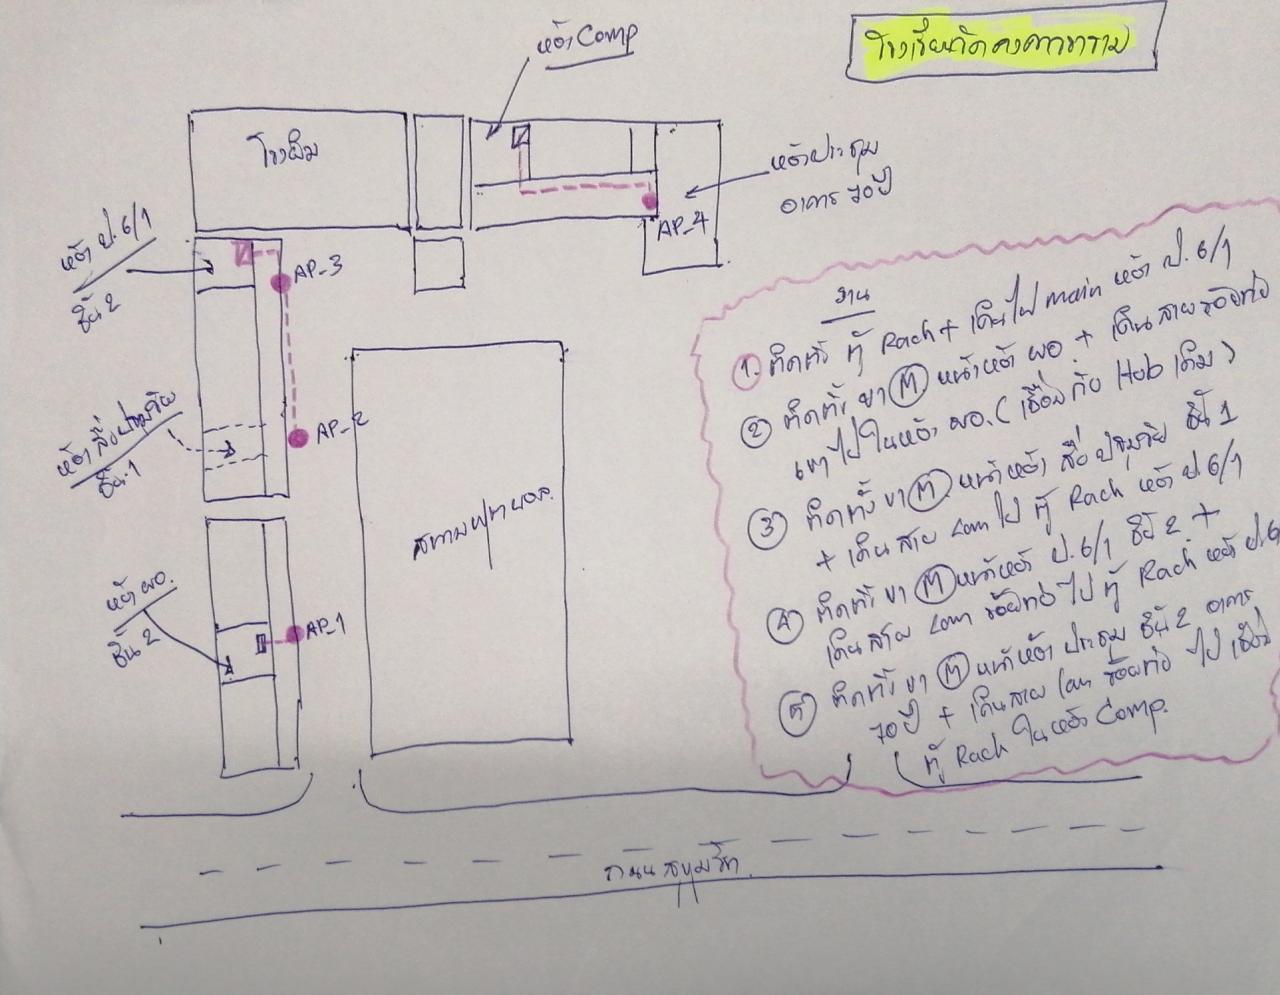 โรงเรียนวัดคงคาราม
ห้อง Comp
โรงยิม
ห้องประชุม
อาคาร 70 ปี
AP_4
ห้อง ป.6/1
ชั้น 2
AP_3
ห้องสื่อปฐมวัย
ชั้น.1
AP_2
สนามฟุตบอล
ห้อง ผอ.
ชั้น 2
AP_1
งาน
1. ติดตั้ง ตู้ Rack + เดินไฟ main ห้อง ป.6/1
2 ติดตั้ง ขา M หน้าห้อง ผอ. + เดินสายร้อยท่อ
เข้าไปในห้อง ผอ. (เชื่อมกับ Hub เดิม)
3 ติดตั้ง ขา M หน้าห้อง สื่อปฐมวัย ชั้น 1
+ เดินสาย Lan ไป ตู้ Rack ห้อง ป.6/1
4 ติดตั้ง ขา M หน้าห้อง ป.6/1 ชั้น 2 +
เดินสาย Lan ร้อยท่อ ไป ตู้ Rack ห้อง ป.6
5 ติดตั้ง ขา M หน้าห้องประชุม ชั้น 2 อาคาร
70 ปี + เดินสาย Lan ร้อยท่อ ไป เชื่อม
ตู้ Rack ในห้อง Comp.
ถนนสุขุมวิท